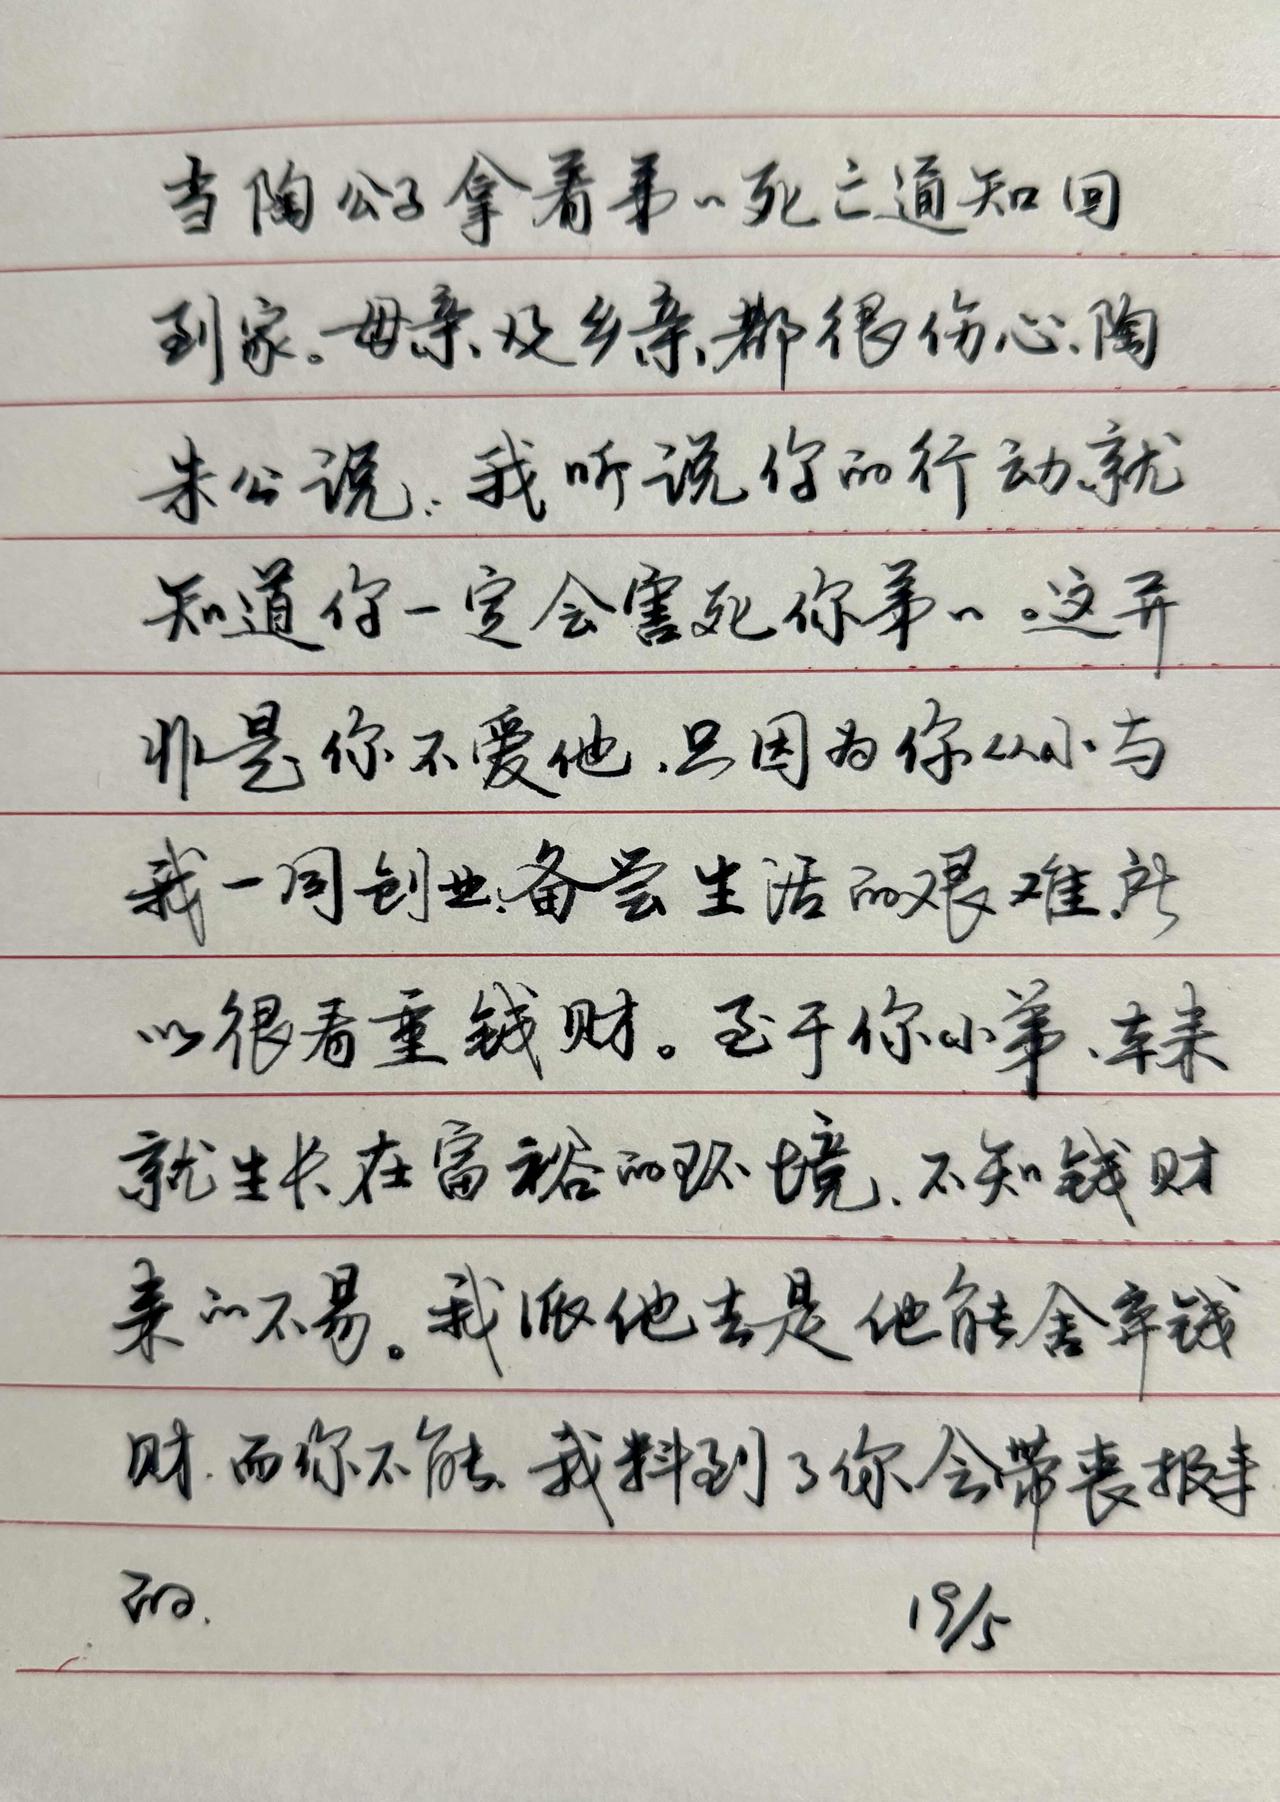 当陶公子拿着弟弟死亡通知回
到家。母亲及乡亲都很伤心、陶
朱公说：我听说你的行动、就
知道你一定会害死你弟弟。这并
非是你不爱他，只因为你从小与
我一同创业、备尝生活的艰难、所
以很看重钱财。至于你小弟、本来
就生长在富裕的环境、不知钱财
来的不易。我派他去是他能舍弃钱
财.而你不能、我料到了你会带丧报来
的.
19/5